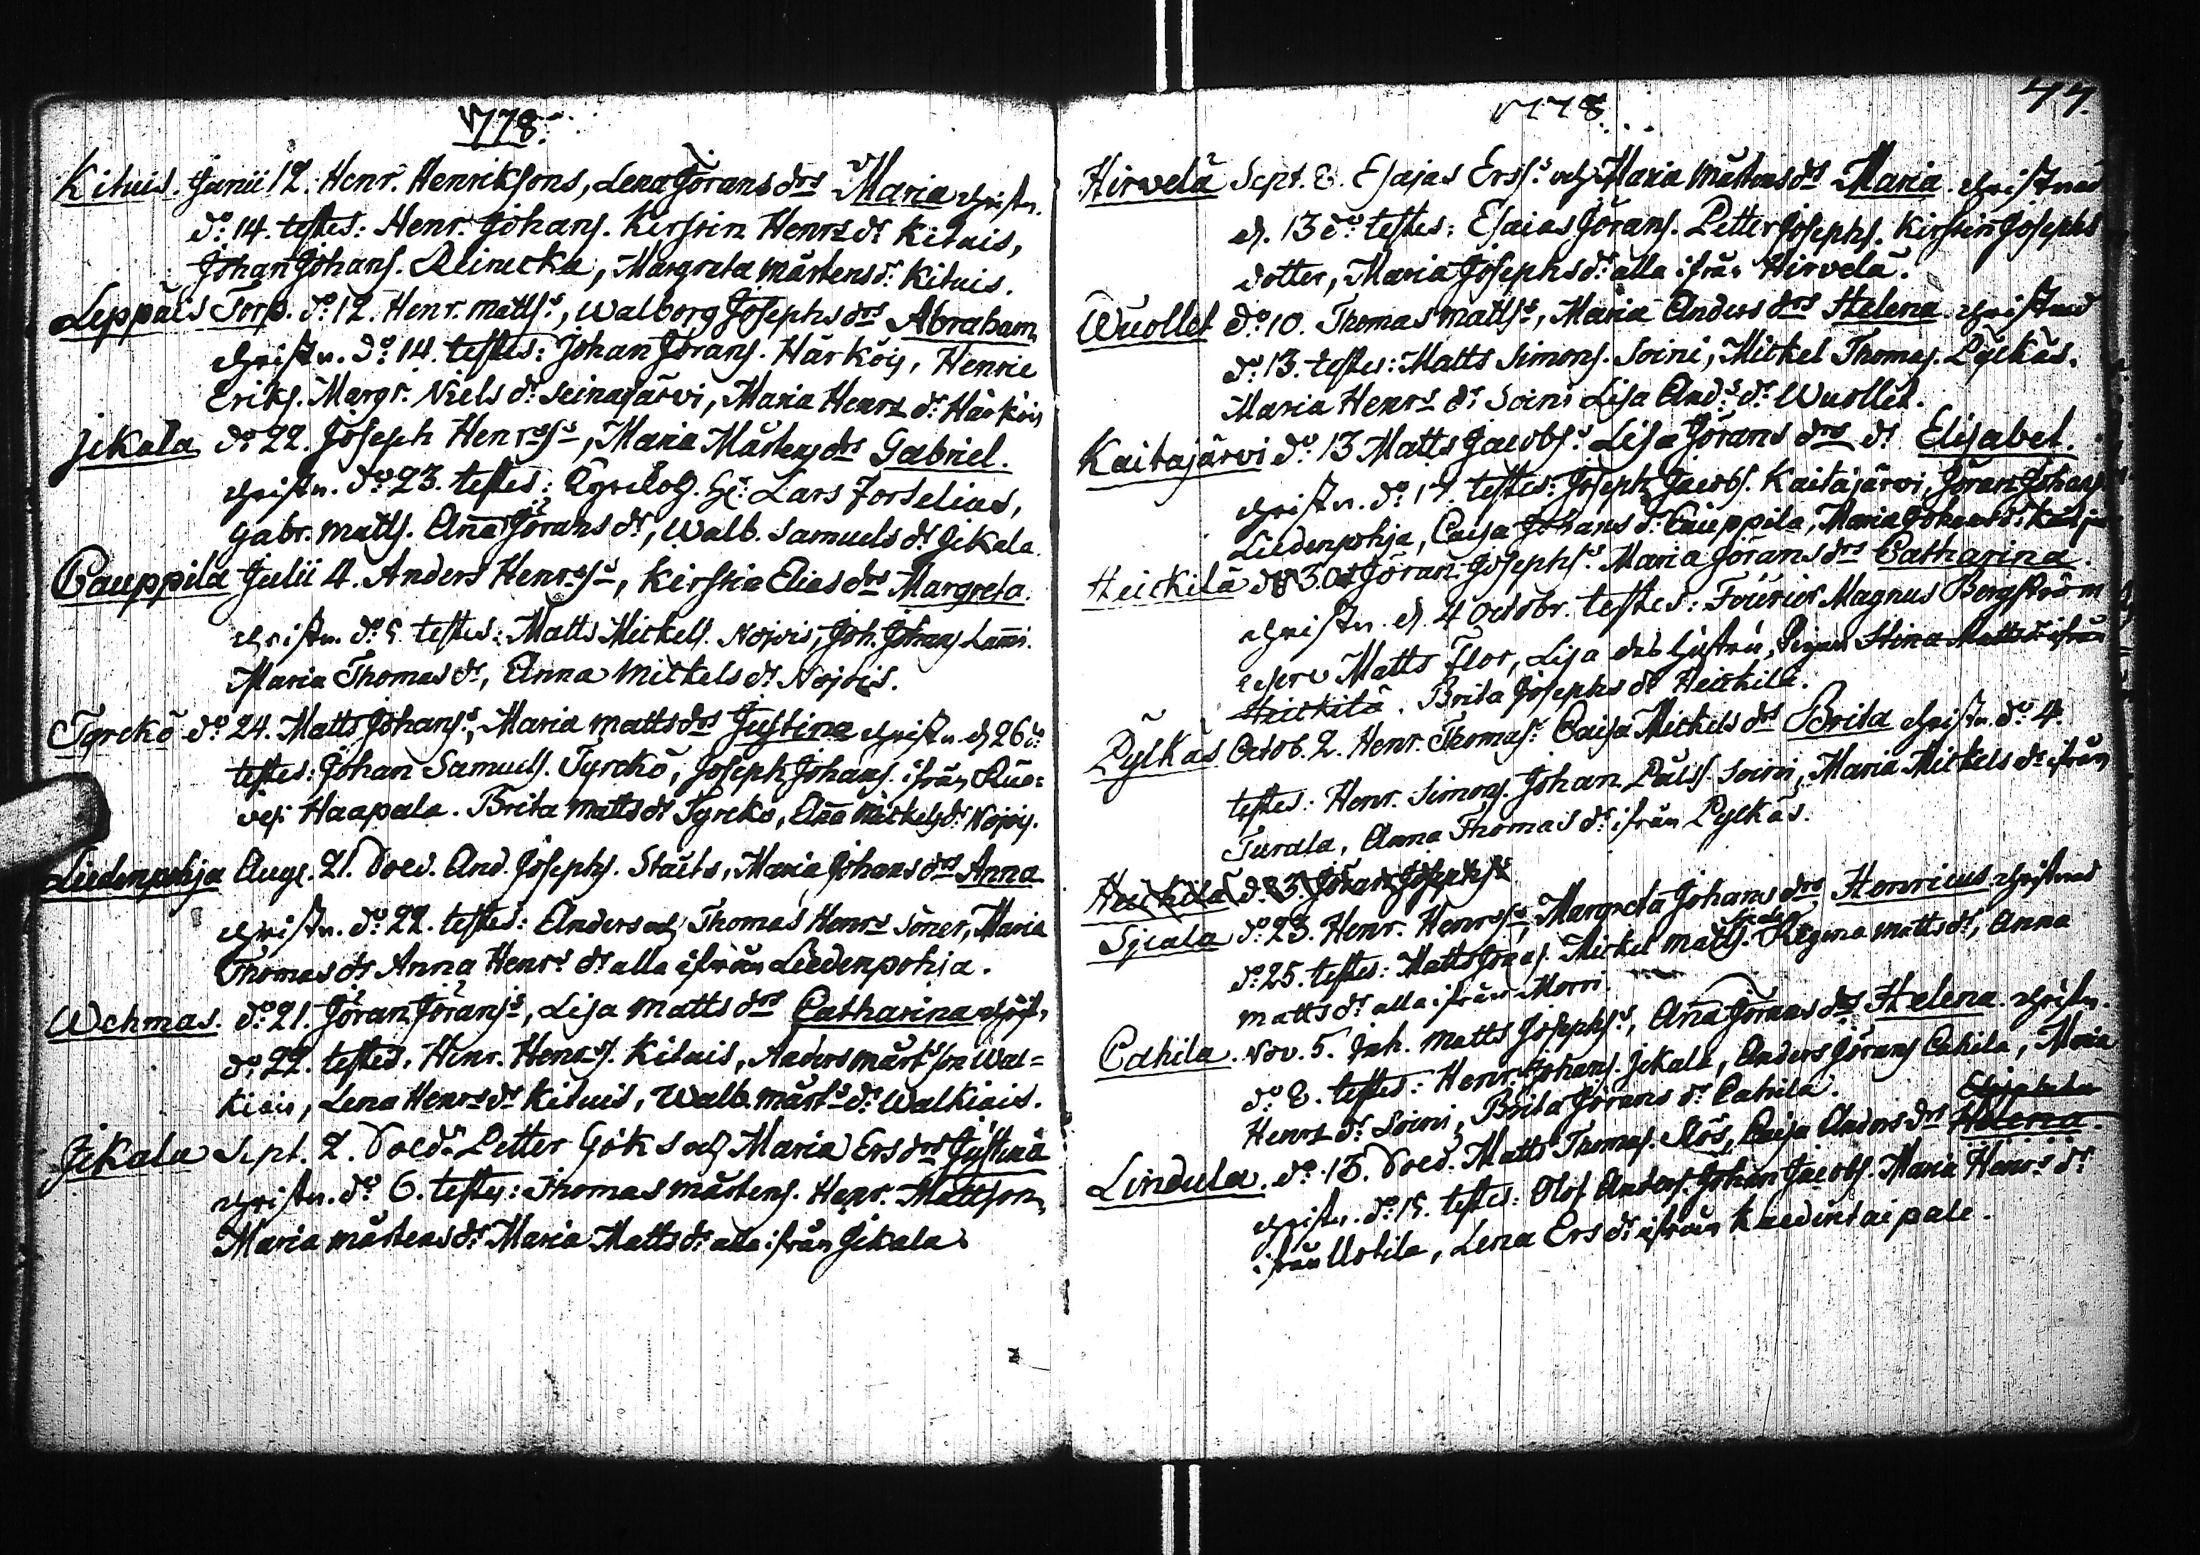 1778.
Kituis. Junii 12. Henr. Henriksons, Lena Jörans drs Maria christn.
do 14. testes: Henr. Johans. Kirstin Henrs dr Kituis,
Johan Johans. Reinicka, Margreta Mårtens dr Kituis.
Leppäis Torp. do 12. Henr. Matts s, Walborg Josephs drs Abraham
christn. do 14. testes: Johan Jörans. Härköis, Henric
Eriks. Margr. Niels dr Seinajärvi, Maria Henrs dr Härköis
Jikala do 22. Joseph Henrss, Maria Mårtens drs Gabriel.
christn. do 23. testes: Lars Forselius,
Gabr. Matts. Aña Jörans dr, Walb. Samuels dr Jikala.
Cauppila Julii 4. Anders Henrss, Kirstin Elias drs Margreta.
christn. do 5. testes: Matts Mickels. Nojois, Joh. Johans
Maria Thomas dr, Anna Mickels dr Nojois.
Tyrckö do 24. Matts Johans s, Maria Matts drs Justina christn. d. 26 do
testes: Johan Samuels. Tyrckö, Joseph Johans. ifrån Rue=
vesi Haapala. Brita Matts dr Tyrckö, Aña Mickels dr Nojois.
Liedenpohja Aug. 21. Sold. And. Josephs. Stålts, Maria Johans drs Anna
christn. do 22. testes: Anders och Thomas Henrs Söner, Maria
Thomas dr Anna Henrs dr alla ifrån Liedenpohja.
Wehmas. do 21. Jöran Jörans s, Lisa Matts drs Catharina christ.
do 22. testes. Henr. Henrss. Kituis, Anders Mårts son Wal=
kiais, Lena Henrs dr Kituis, Walb. Mårts dr Walkiais.
Jikala Sept. 2. Sold. Petter Göks och Maria Ers drs Justina
christn. do 6. testes: Thomas Mårtens. Henr. Mattson,
Maria Mårtens dr Maria Matts dr alla ifrån Jikala.
1778. 47.
Hirvelä Sept. 8. Esajas Erss. och Maria Mårtens drs Maria. christnad
d. 13 do testes: Esaias Jörans. Petter Josephs. Kirstin Josephs
dotter, Maria Josephs dr alla ifrån Hirvelä.
Wuollet do 10. Thomas Matts s, Maria Anders drs Helena christnad
do 13. testes: Matts Simons. Soini, Mickel Thomas. Pylckäs.
Maria Henrs dr Soini Lisa Ands dr Wuollet.
Kaitajärvi do 13 Matts Jacobs s Lisa Jörans drs dr Elisabet.
christn. do 17. testes: Joseph Jacobs. Kaitajärvi, Jöran Johans
Liedenpohja, Caisa Johans dr Cauppila, Maria Johans dr
Heickilä do 30 Jöran Josephs s Maria Jörans drs Catharina.
christn. d. 4 Octobr. testes: Fourier Magnus Bergström
Matts Flor, Lisa Pigan Stina Matts dr ifrån
Heickilä. Brita Josephs dr Heickilä.
Pylkäs Octob. 2. Henr. Thomas s Caisa Mickels drs Brita christn. do 4.
testes: Henr. Simons. Johan Påls s. Soini, Maria Mickels dr ifrån
Turala, Anna Thomas dr ifrån Pylkäs.
Heickilä do 3. Jöran Josephs s
Sjcala do 23. Henr. Henrss, Margreta Johans drs Henricus christnad
do 25. testes: Matts Jöns. Mickel Matts. Regina Matts dr, Anna
Matts dr alla ifrån Morri.
Cahila. Nov. 5. Inh. Matts Josephs s, Aña Jörans drs Helena. christn.
do 8. testes: Henr. Johans. Jikala, Anders Jörans Cahila, Maria
Henrs dr Soini, Brita Jörans dr Cahila.
Lindula. do 13. Sold. Matts Thomas. Rös, Caisa Anders drs Helena.
christn. do 15. testes: Olof Anders. Johan Jacobs. Maria Henrs dr
ifrån Uotila, Lena Ers dr ifrån